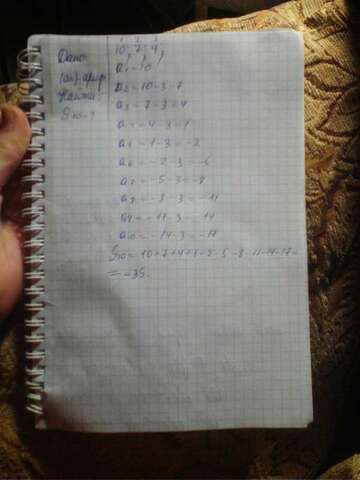 Дано:
(an)-ариф
Найти:
S10-?
10; 7; 4;
a1=10
a2=10-3=7
a3=7-3=4
a4=4-3=1
a5=1-3=-2
a6=-2-3=-5
a7=-5-3=-8
a8=-8-3=-11
a9=-11-3=-14
a10=-14-3=-17
S10=10+7+4+1-2-5-8-11-14-17=
=-35.